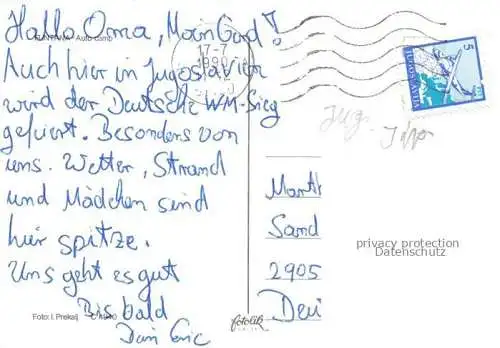 Hallo Oma, Moin Gerd!
FUNTANA Autocamp
Auch hier in Jugoslavien
wird der Deutsche WM-Sieg
gefeiert. Besonders von
uns. Wetter, Strand
und Mädchen sind
hier spitze.
Uns geht es gut
Bis bald
Dein Eric
Foto: I. Prekalj
fotolik
17-7
1990
5
JUGOSLAVIJA
Jug.
Sand
2905
privacy protection
Datenschutz